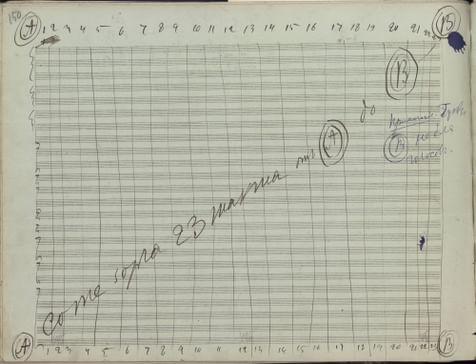 150
A 1 2 3 4 5 6 7 8 9 10 11 12 13 14 15 16 17 18 19 20 21 22 23 B
Come sopra 23 такта от A до B
B
A 1 2 3 4 5 6 7 8 9 10 11 12 13 14 15 16 17 18 19 20 21 22 23 B